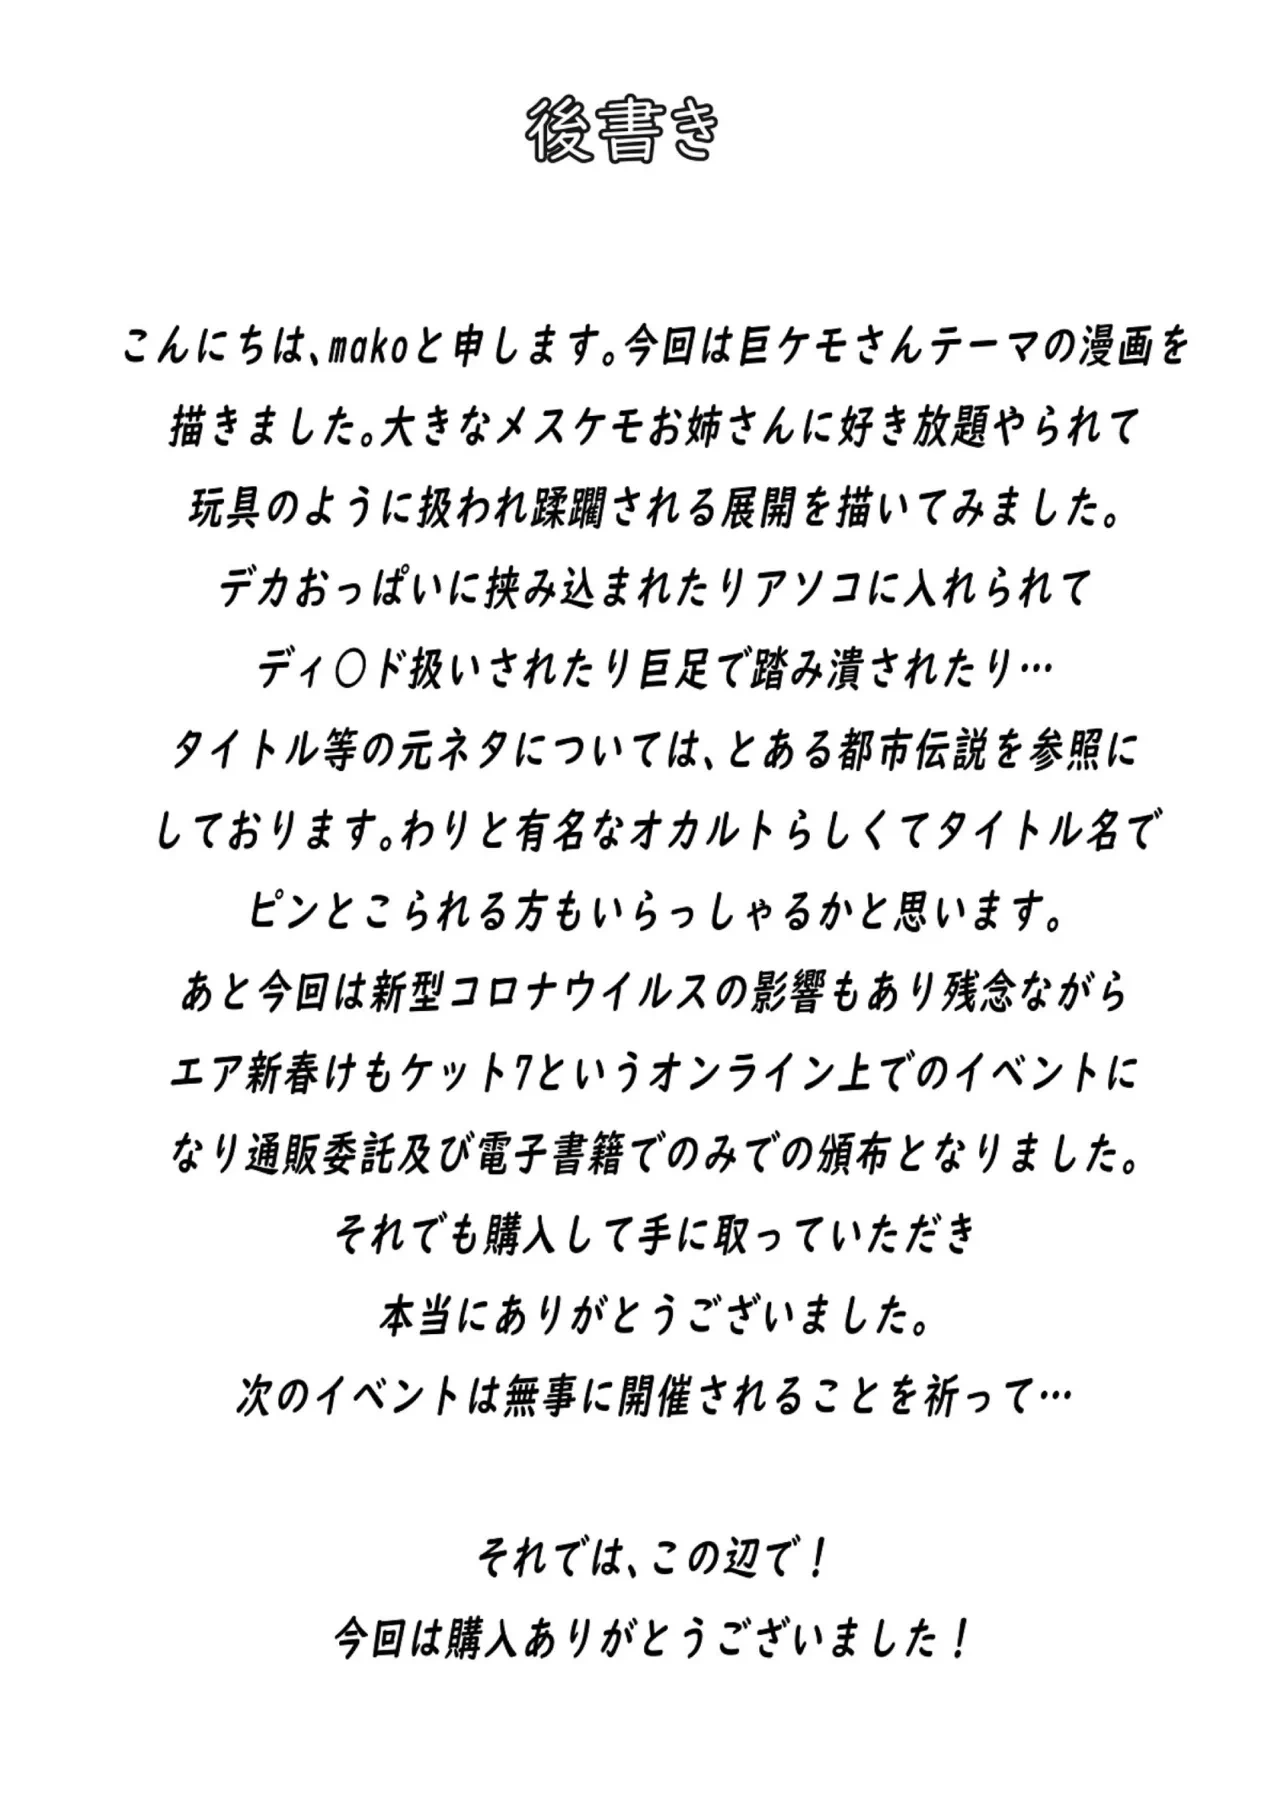 後書き
こんにちは、makoと申します。今回は巨ケモさんテーマの漫画を
描きました。大きなメスケモお姉さんに好き放題やられて
玩具のように扱われ蹂躙される展開を描いてみました。
デカおっぱいに挟み込まれたりアソコに入れられて
ディ○ド扱いされたり巨足で踏み潰されたり…
タイトル等の元ネタについては、とある都市伝説を参照に
しております。わりと有名なオカルトらしくてタイトル名で
ピンとこられる方もいらっしゃるかと思います。
あと今回は新型コロナウイルスの影響もあり残念ながら
エア新春けもケット7というオンライン上でのイベントに
なり通販委託及び電子書籍でのみでの頒布となりました。
それでも購入して手に取っていただき
本当にありがとうございました。
次のイベントは無事に開催されることを祈って…
それでは、この辺で！
今回は購入ありがとうございました！